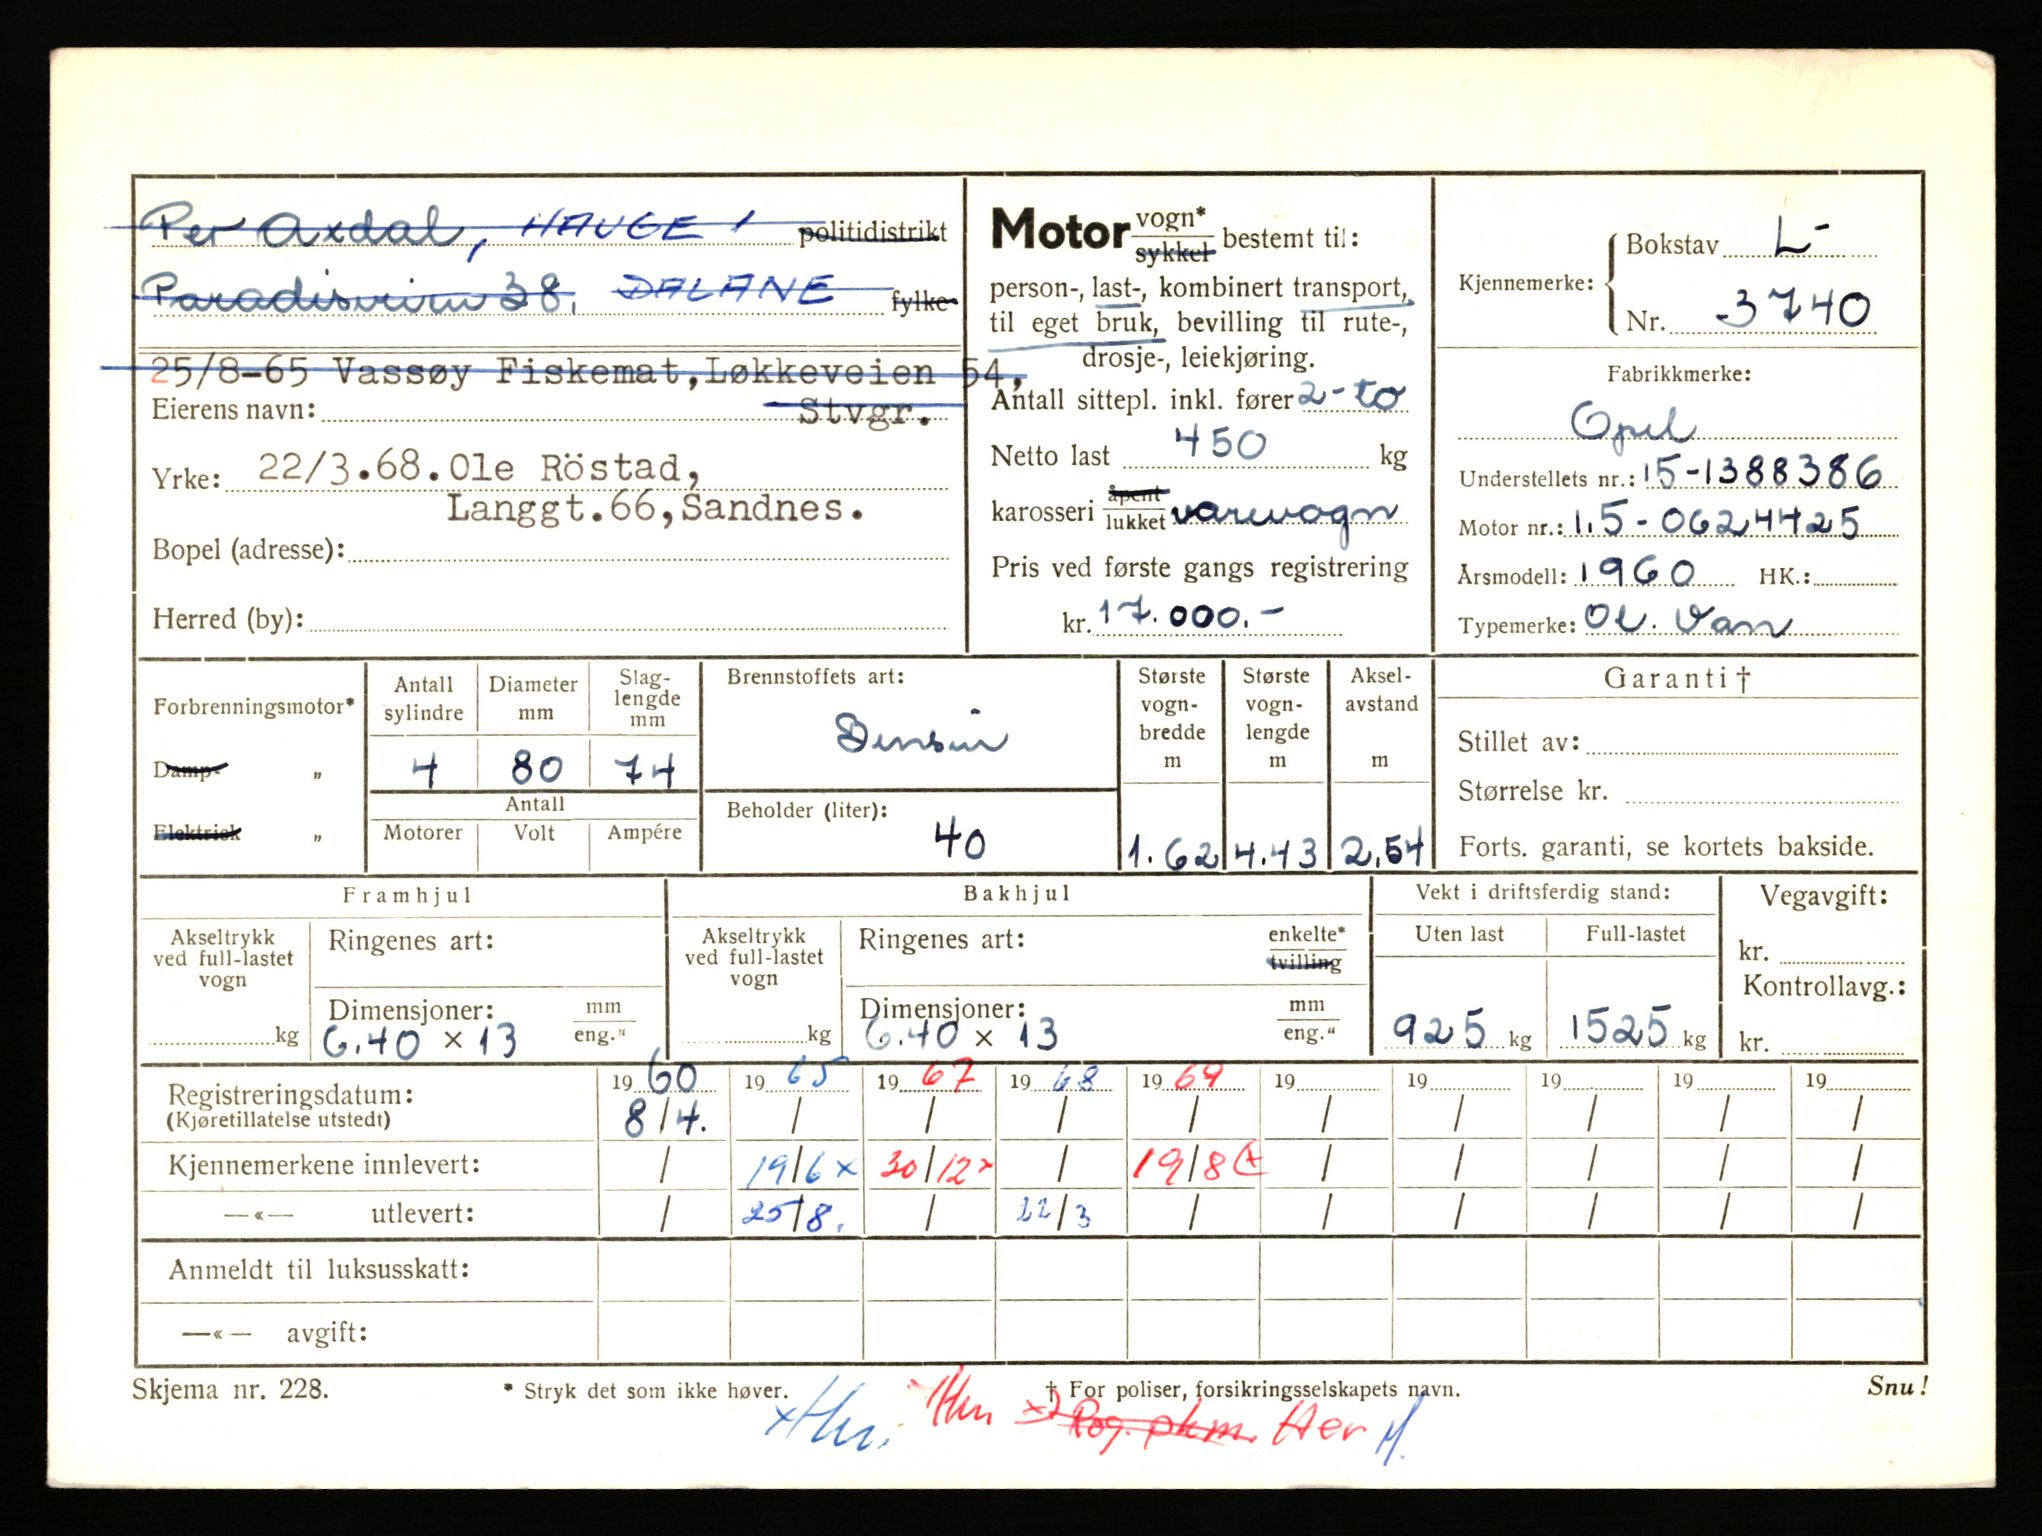 Per Axdal, HAUGE I politidistrikt
Paradisveien 38, DALANE fylke
25/8-65 Vassøy Fiskemat,Løkkeveien 54,
Eierens navn: Stvgr.
Yrke: 22/3.68.Ole Röstad,
Langgt.66,Sandnes.
Bopel (adresse):
Herred (by):
Motor vogn* sykkel bestemt til:
person-, last-, kombinert transport,
til eget bruk, bevilling til rute-,
drosje-, leiekjøring.
Antall sittepl. inkl. fører 2-to
Netto last 450 kg
karosseri åpent lukket varevogn
Pris ved første gangs registrering
kr. 17.000.-
Kjennemerke: Bokstav L-
Nr. 3740
Fabrikkmerke:
Opel
Understellets nr.: 15-1388386
Motor nr.: 1.5-0624425
Årsmodell: 1960 HK.:
Typemerke: Ol. Van
Forbrenningsmotor*
Damp- „
Elektrisk „
Antall sylindre
Diameter mm
Slag- lengde mm
4 80 74
Antall
Motorer Volt Ampére
Brennstoffets art:
Bensin
Beholder (liter):
40
Største vogn- bredde m
1.62
Største vogn- lengde m
4.43
Aksel- avstand m
2.54
Garanti †
Stillet av:
Størrelse kr.
Forts. garanti, se kortets bakside.
Framhjul
Akseltrykk ved full-lastet vogn
kg
Ringenes art:
Dimensjoner: mm eng."
6.40 x 13
Bakhjul
Akseltrykk ved full-lastet vogn
kg
Ringenes art: enkelte* tvilling
Dimensjoner: mm eng."
6.40 x 13
Vekt i driftsferdig stand:
Uten last Full-lastet
925 kg 1525 kg
Vegavgift:
kr.
Kontrollavg.:
kr.
19 60 19 65 19 67 19 68 19 69 19 19 19 19 19
Registreringsdatum: 8/4. / / / / / / / / /
(Kjøretillatelse utstedt)
Kjennemerkene innlevert: / 19/6 x 30/12 x / 19/8 / / / / /
—«— utlevert: / 25/8. / 22/3 / / / / / /
Anmeldt til luksusskatt:
—«— avgift:
Skjema nr. 228. * Stryk det som ikke høver. † For poliser, forsikringsselskapets navn. Snu!
Rog. Her